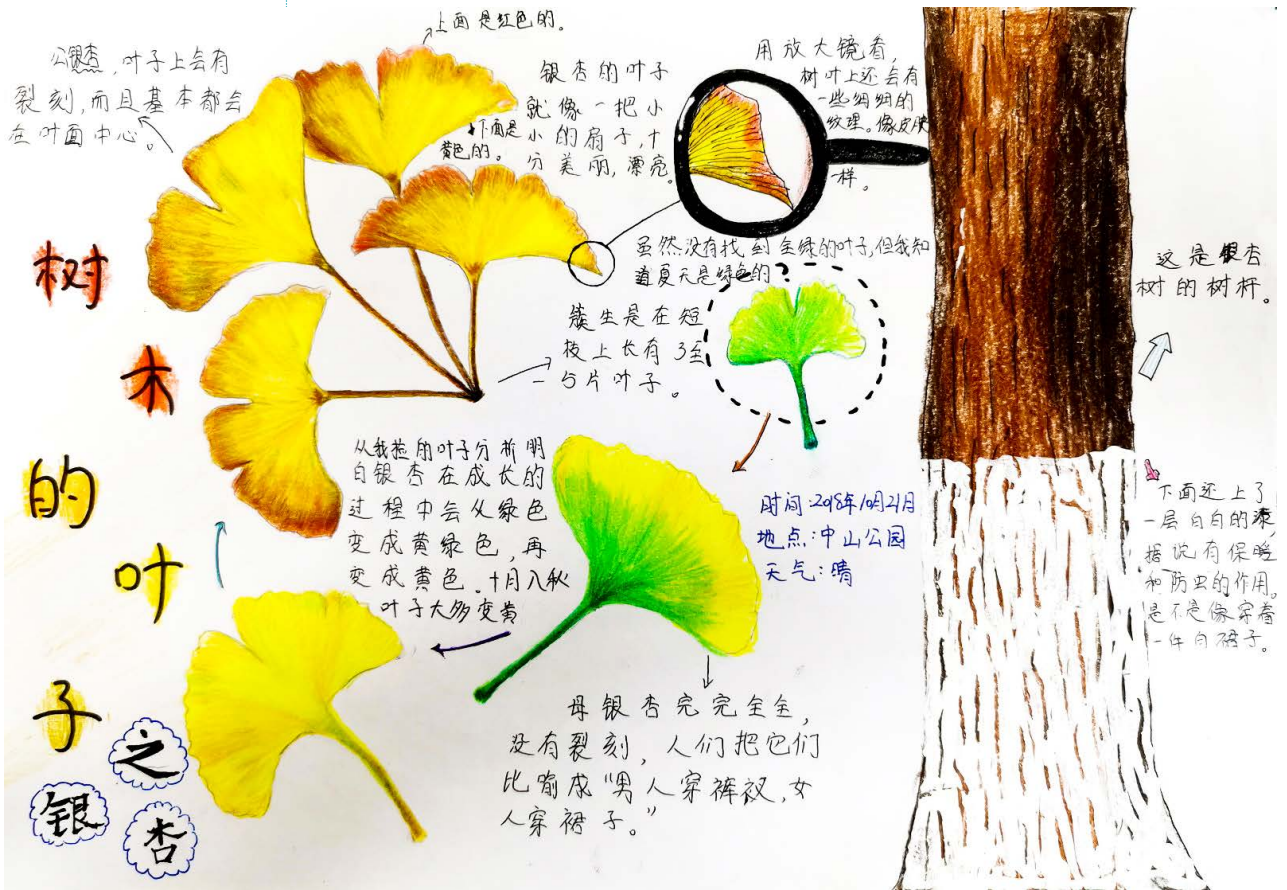 树
木
的
叶
子
之
银
杏
公银杏,叶子上会有
裂刻,而且基本都会
在叶面中心。
上面是红色的。
下面是
黄色的。
银杏的叶子
就像一把小
小的扇子,十
分美丽,漂亮。
用放大镜看,
树叶上还会有
一些细细的
纹理。像皮肤
一样。
虽然没有找到全绿的叶子,但我知
道夏天是绿色的?
簇生是在短
枝上长有3至
5片叶子。
从我捡的叶子分析明
白银杏在成长的
过程中会从绿色
变成黄绿色,再
变成黄色。十月入秋
叶子大多变黄
时间:2018年10月21日
地点:中山公园
天气:晴
母银杏完完全全,
没有裂刻,人们把它们
比喻成“男人穿裤衩,女
人穿裙子。”
这是银杏
树的树杆。
下面还上了
一层白白的漆,
据说有保暖
和防虫的作用。
是不是像穿着
一件白裙子。